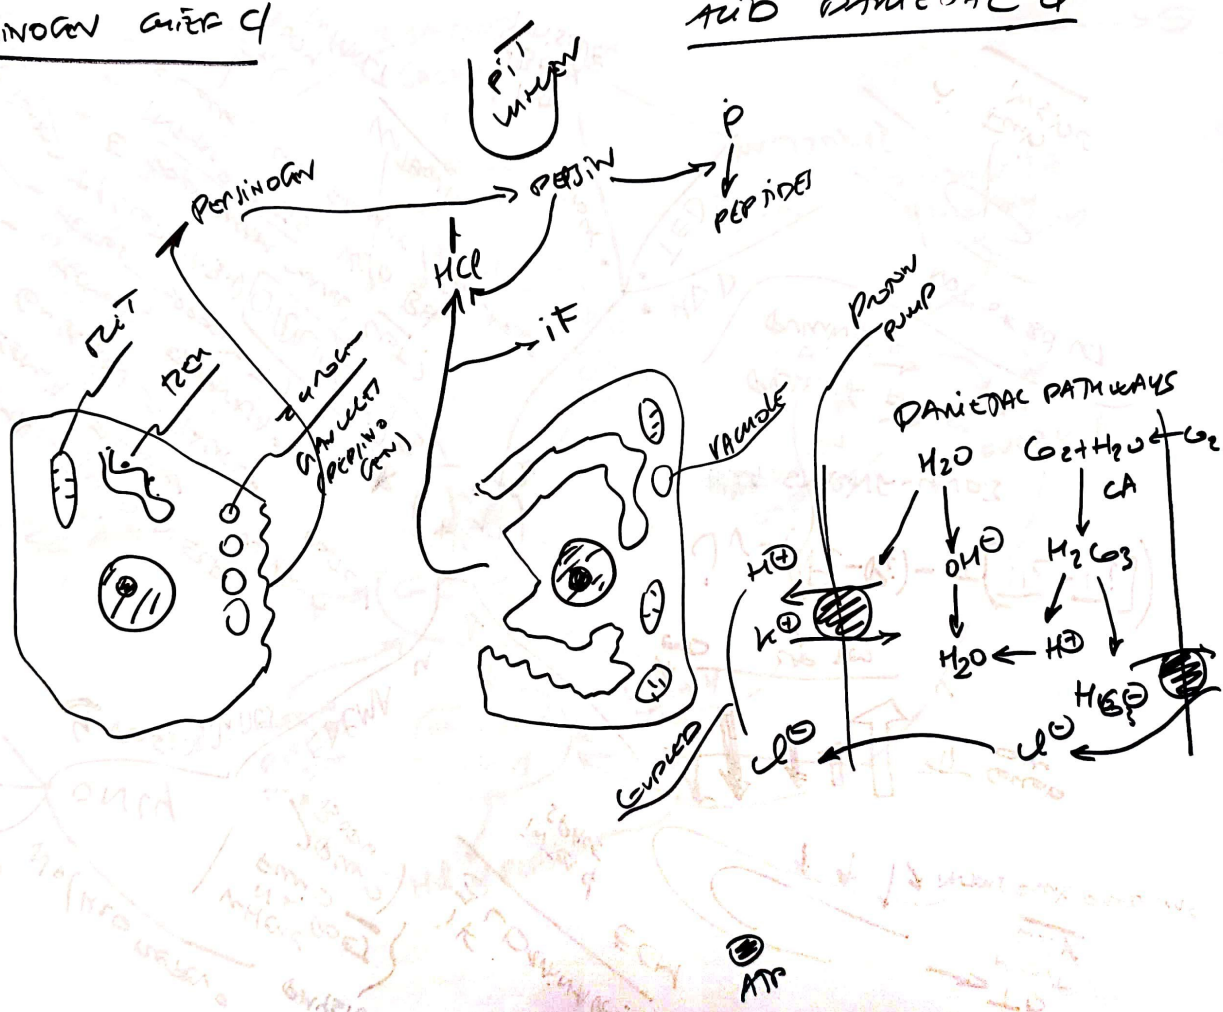 INOGEN CHIEF C/
ACID PARIETAL C/
PIT
LUMEN
PEPSINOGEN
PEPSIN
P
PEPTIDES
HCl
iF
MIT
RER
ZYMOGEN
GRANULES
(PEPSINO
GEN)
VACUOLE
PROTON
PUMP
PARIETAL PATHWAYS
H2O
CO2+H2O ← CO2
CA
OH⊖
H2CO3
H⊕
K⊕
H2O ← H⊕
HCO3⊖
Cl⊖
Cl⊖
COUPLED
ATP